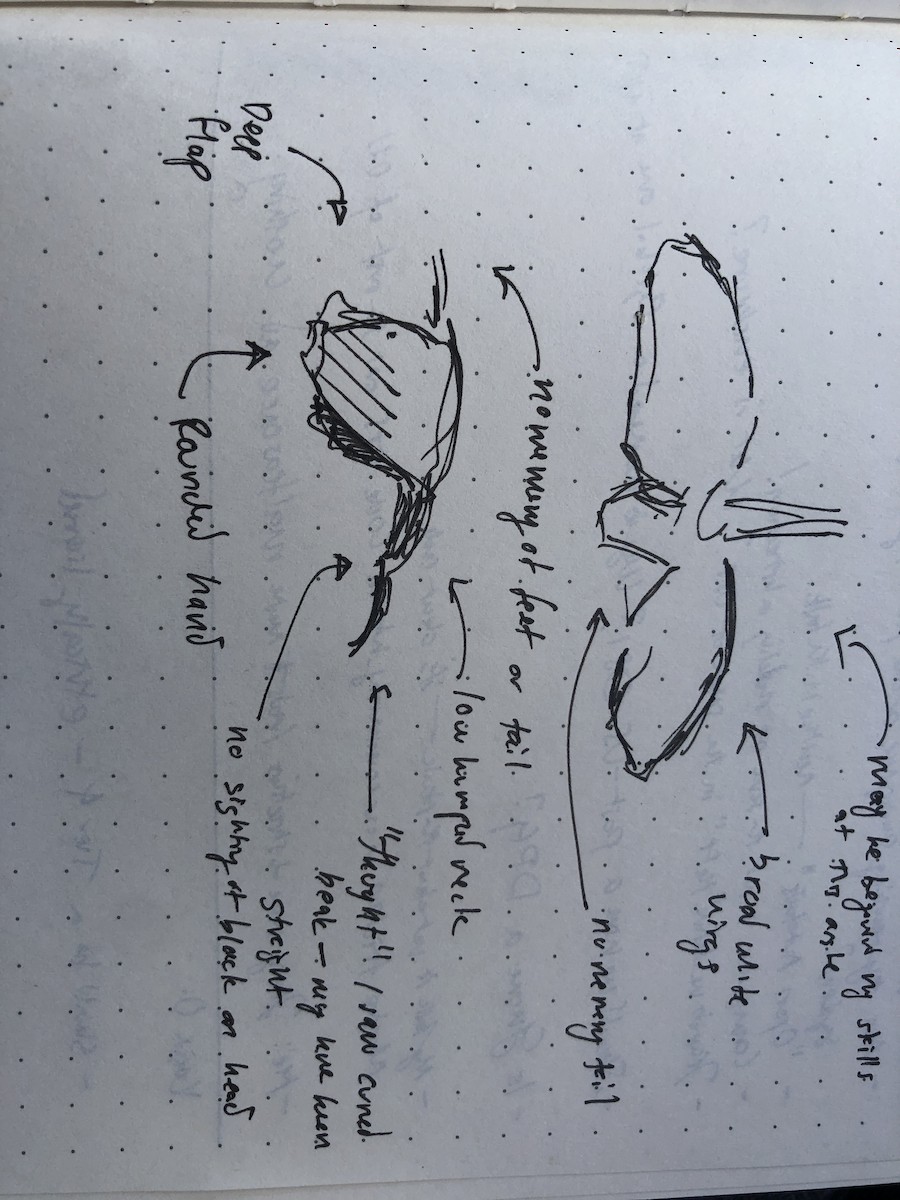 may be beyond my skills
at this angle
broad white
wings
no memory tail
no memory of feet or tail.
low humped neck
Deep
flap
"thought" / saw curved
beak – may have been
straight
Rounded hand
no sighting of black on head